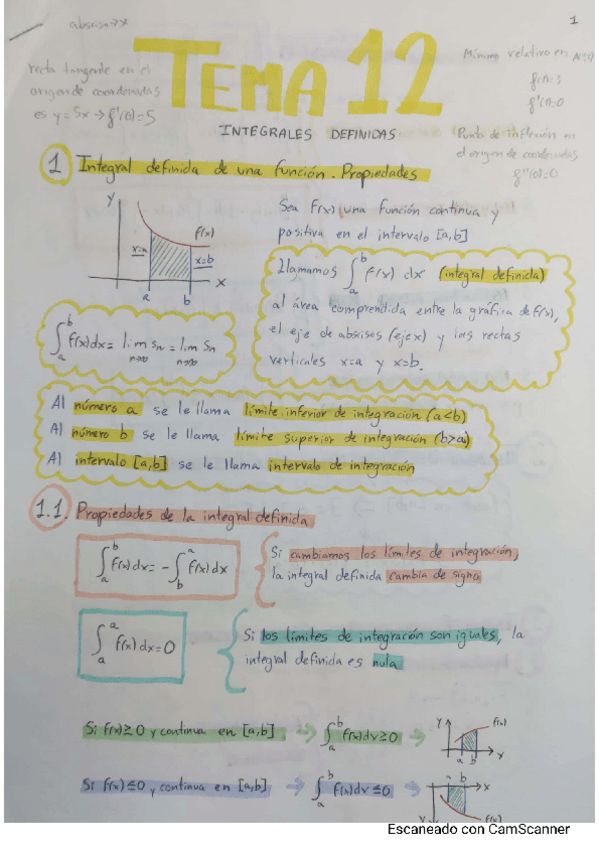 abscisa→x
1
TEMA 12
recta tangente en el
origen de coordenadas
es y=5x → f'(0)=5
Mínimo relativo en
f'(1)=0
Punto de inflexión en
el origen de coordenadas
f''(0)=0
INTEGRALES DEFINIDAS
1 Integral definida de una función. Propiedades
Y
f(x)
x=a
x=b
X
a
b
Sea f(x) una función continua y
positiva en el intervalo [a,b]
Llamamos ∫_a^b f(x) dx (integral definida)
al área comprendida entre la gráfica de f(x),
el eje de abscisas (eje x) y las rectas
verticales x=a y x=b.
∫_a^b f(x)dx = lim_{n→∞} sn = lim_{n→∞} Sn
Al número a se le llama límite inferior de integración (a<b)
Al número b se le llama límite superior de integración (b>a)
Al intervalo [a,b] se le llama intervalo de integración
1.1. Propiedades de la integral definida
∫_a^b f(x)dx = -∫_b^a f(x)dx
Si cambiamos los límites de integración,
la integral definida cambia de signo
∫_a^a f(x)dx=0
Si los límites de integración son iguales, la
integral definida es nula
Si f(x)≥0 y continua en [a,b] → ∫_a^b f(x)dx≥0 →
Y
f(x)
a b
X
Si f(x)≤0 y continua en [a,b] → ∫_a^b f(x)dx≤0 →
b
X
Y
f(x)
Escaneado con CamScanner